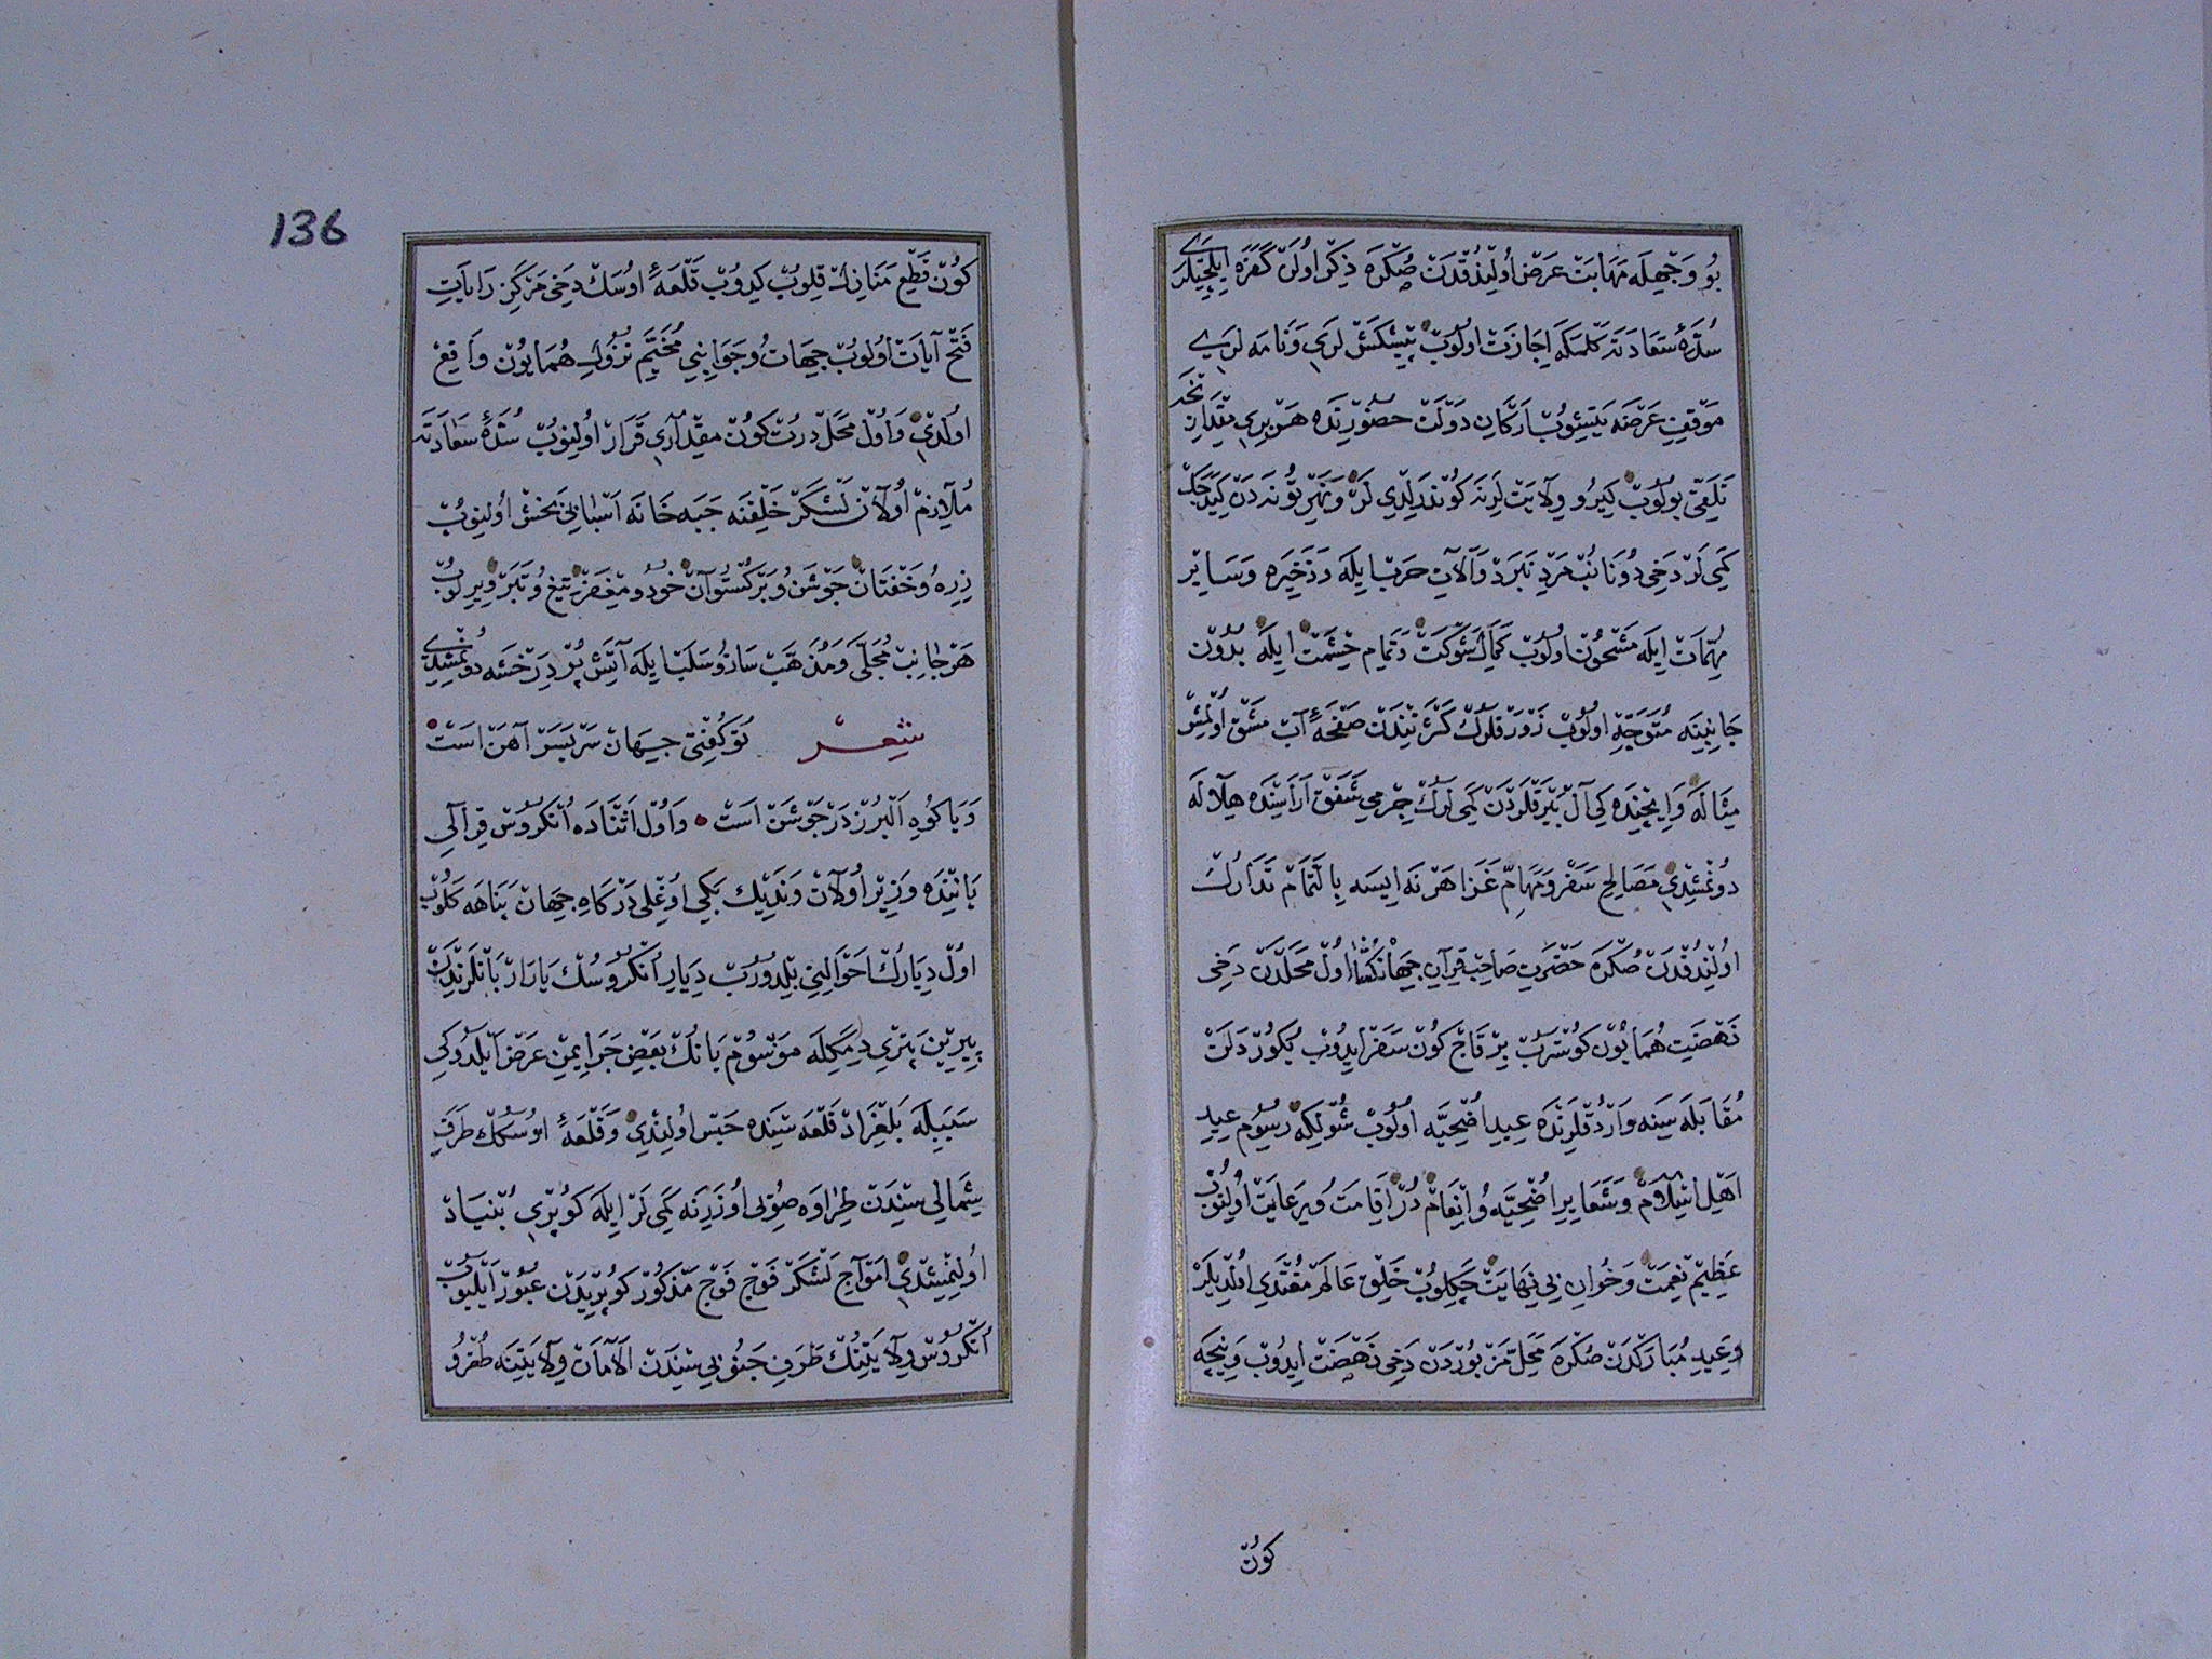 بُو وَجْهِلَه مَهَابَتْ عَرَضْ اُولِنْدُقْدَنْ صُكْرَه ذِكْر اُولَنْ كَفَرَه ايلْچِيلَرِي
سُدَّۀ سَعَادَتَه كَلْمَكَه اِجَازَتْ اولُوبْ پيشْكَشْ لَرِي وَنَامَه لَرِي
مَوْقِفِ عَرْضَه يَتِشُوبْ اَرْكَانِ دَوْلَتْ حضُورِنْدَه هَرْ بِرِي مِقْدَارِنْجَه
تَلَقِّي بُولُوبْ كِيرُو وِلَايَتْ لَرِنَه كُونْدَرِلْدِي لَرْ وَنَهْرِ تُونَه دَنْ كِيدَجَكْ
كَمِي لَرْ دَخِي دُونَانُبْ مَرْدِ نَبَرْدْ وَآلَاتِ حَرْب ايلَه وَذَخِيرَه وَسَايِرْ
مُهِمَّاتْ ايلَه مَشْحُونْ اولُوبْ كَمَالِ شَوْكَتْ وَتَمَامِ حِشْمَتْ ايلَه بُدُونْ
جَانِبِنَه مُتَوَجِّه اولُوبْ زَوْرَقْلَرُكْ كَثْرَتِنْدَنْ صَفْحَۀ آبْ مَشْقْ اُولْمِشْ
مِثَالَه وَايچِنْدَه كِي آلْ بَيْرَقْلَرْدَنْ كَمِي لَرُكْ جِرْمِي شَفَقْ آرَاسِنْدَه هِلَالَه
دُونْمِشْدِي مَصَالِحِ سَفَرْ وَمَهَامِّ غَزَا هَرْ نَه ايسَه بِالتَّمَامْ تَدَارُكْ
اُولِنْدُقْدَنْ صُكْرَه حَضْرَتِ صَاحِبْ قِرَانِ جِهَانْكُشَا اُولْ مَحَلْدَنْ دَخِي
نَهْضَتِ هُمَايُونْ كُوسْتَرُبْ بِرْ قَاچْ كُونْ سَفَرْ ايدُوبْ يُكُورْدَلَنْ
مُقَابَلَه سِينَه وَارْدُقْلَرِنْدَه عِيدِ اُضْحِيَّه اولُوبْ شُولْكِه رُسُومِ عِيدِ
اَهْلِ اِسْلَامْ وَشَعَايِرِ اُضْحِيَّه وُ اِنْعَامْ دُرْ اِقَامَتْ وُ رِعَايَتْ اُولِنُوبْ
عَظِيمْ نِعْمَتْ وَخُوَانِ بِي نِهَايَتْ چَكِلُوبْ خَلْقِ عَالَمْ مُغْتَذِي اُولْدِيلَرْ
وَعِيدِ مُبَارَكْدَنْ صُكْرَه مَحَلِّ مَزْبُورْدَنْ دَخِي نَهْضَتْ ايدُوبْ وَنِيجَه
كُونْ
136
كُونْ قَطْعِ مَنَازِلْ قِلُوبْ كِيدُوبْ قَلْعَۀ اوُسَكْ دَخِي مَرْكَزِ رَايَاتِ
فَتْحْ آيَاتْ اُولُوبْ جِهَاتْ وُ جَوَانِبِي مُخَيَّمِ نُزُولِ هُمَايُونْ وَاقِعْ
اُولْدِي وَاُولْ مَحَلْدَه دُرْتْ كُونْ مِقْدَارِي قَرَارْ اُولِنُوبْ سُدَّۀ سَعَادَتَه
مُلَازِمْ اُولَانْ لَشْكَرْ خَلْقِنَه جَبَه خَانَه اَسْبَابِي بَخْشْ اُولِنُوبْ
زِرِه وُ خَفْتَانْ جَوْشَنْ وُ بَرْكُسْتُوَانْ خُودْ وُ مِغْفَرْ تِيغْ وُ تَبَرْ وِيرِلُوبْ
هَرْ جَانِبْ مُجَلَّى وَمُذَهَّبْ سَازْ وُ سَلَبْ ايلَه آتَشْ پُرْ دِرَخْشَه دُونْمِشْدِي
شعر تُو كُفْتِي جِهَانْ سَرْبَسَرْ آهَنْ اَسْتْ
وَيَا كُوهِ اَلْبُرْزْ دَرْ جَوْشَنْ اَسْتْ وَاُولْ اَثْنَادَه اُنْكُرُوسْ قِرَالِي
يَانِنْدَه وَزِيرْ اُولَانْ وَنَدِيكْ بَكِي اُوغْلِي دَرْكَاهِ جِهَانْ پَنَاهَه كَلُوبْ
اُولْ دِيَارُكْ اَحْوَالِنِي بِلْدُورُبْ دِيَارِ اُنْكُرُوسُكْ يَارَارْ بَانْلَرِنْدَنْ
پِيرِينْ پِتْرِي دِمَكِلَه مَوْسُومْ بَانُكْ بَعْضِ جَرَايِمِنْ عَرْضْ ايلَدُوكِي
سَبَبِلَه بَلْغِرَادْ قَلْعَه سِنْدَه حَبْسْ اُولِنْدِي وَقَلْعَۀ اوُسُكُكْ طَرَفِ
شِمَالِي سِنْدَنْ طِرَاوَه صُويِي اُوزَرِنَه كَمِي لَرْ ايلَه كُوپْرِي بُنْيَادْ
اُولِنْمِشْدِي اَمْوَاجِ لَشْكَرْ فَوْجْ فَوْجْ مَذْكُورْ كُوپْرِيدَنْ عُبُورْ ايلَيُوبْ
اُنْكُرُوسْ وِلَايَتِنُكْ طَرَفِ جَنُوبِي سِنْدَنْ اَلَامَانْ وِلَايَتِنَه طُغْرُو